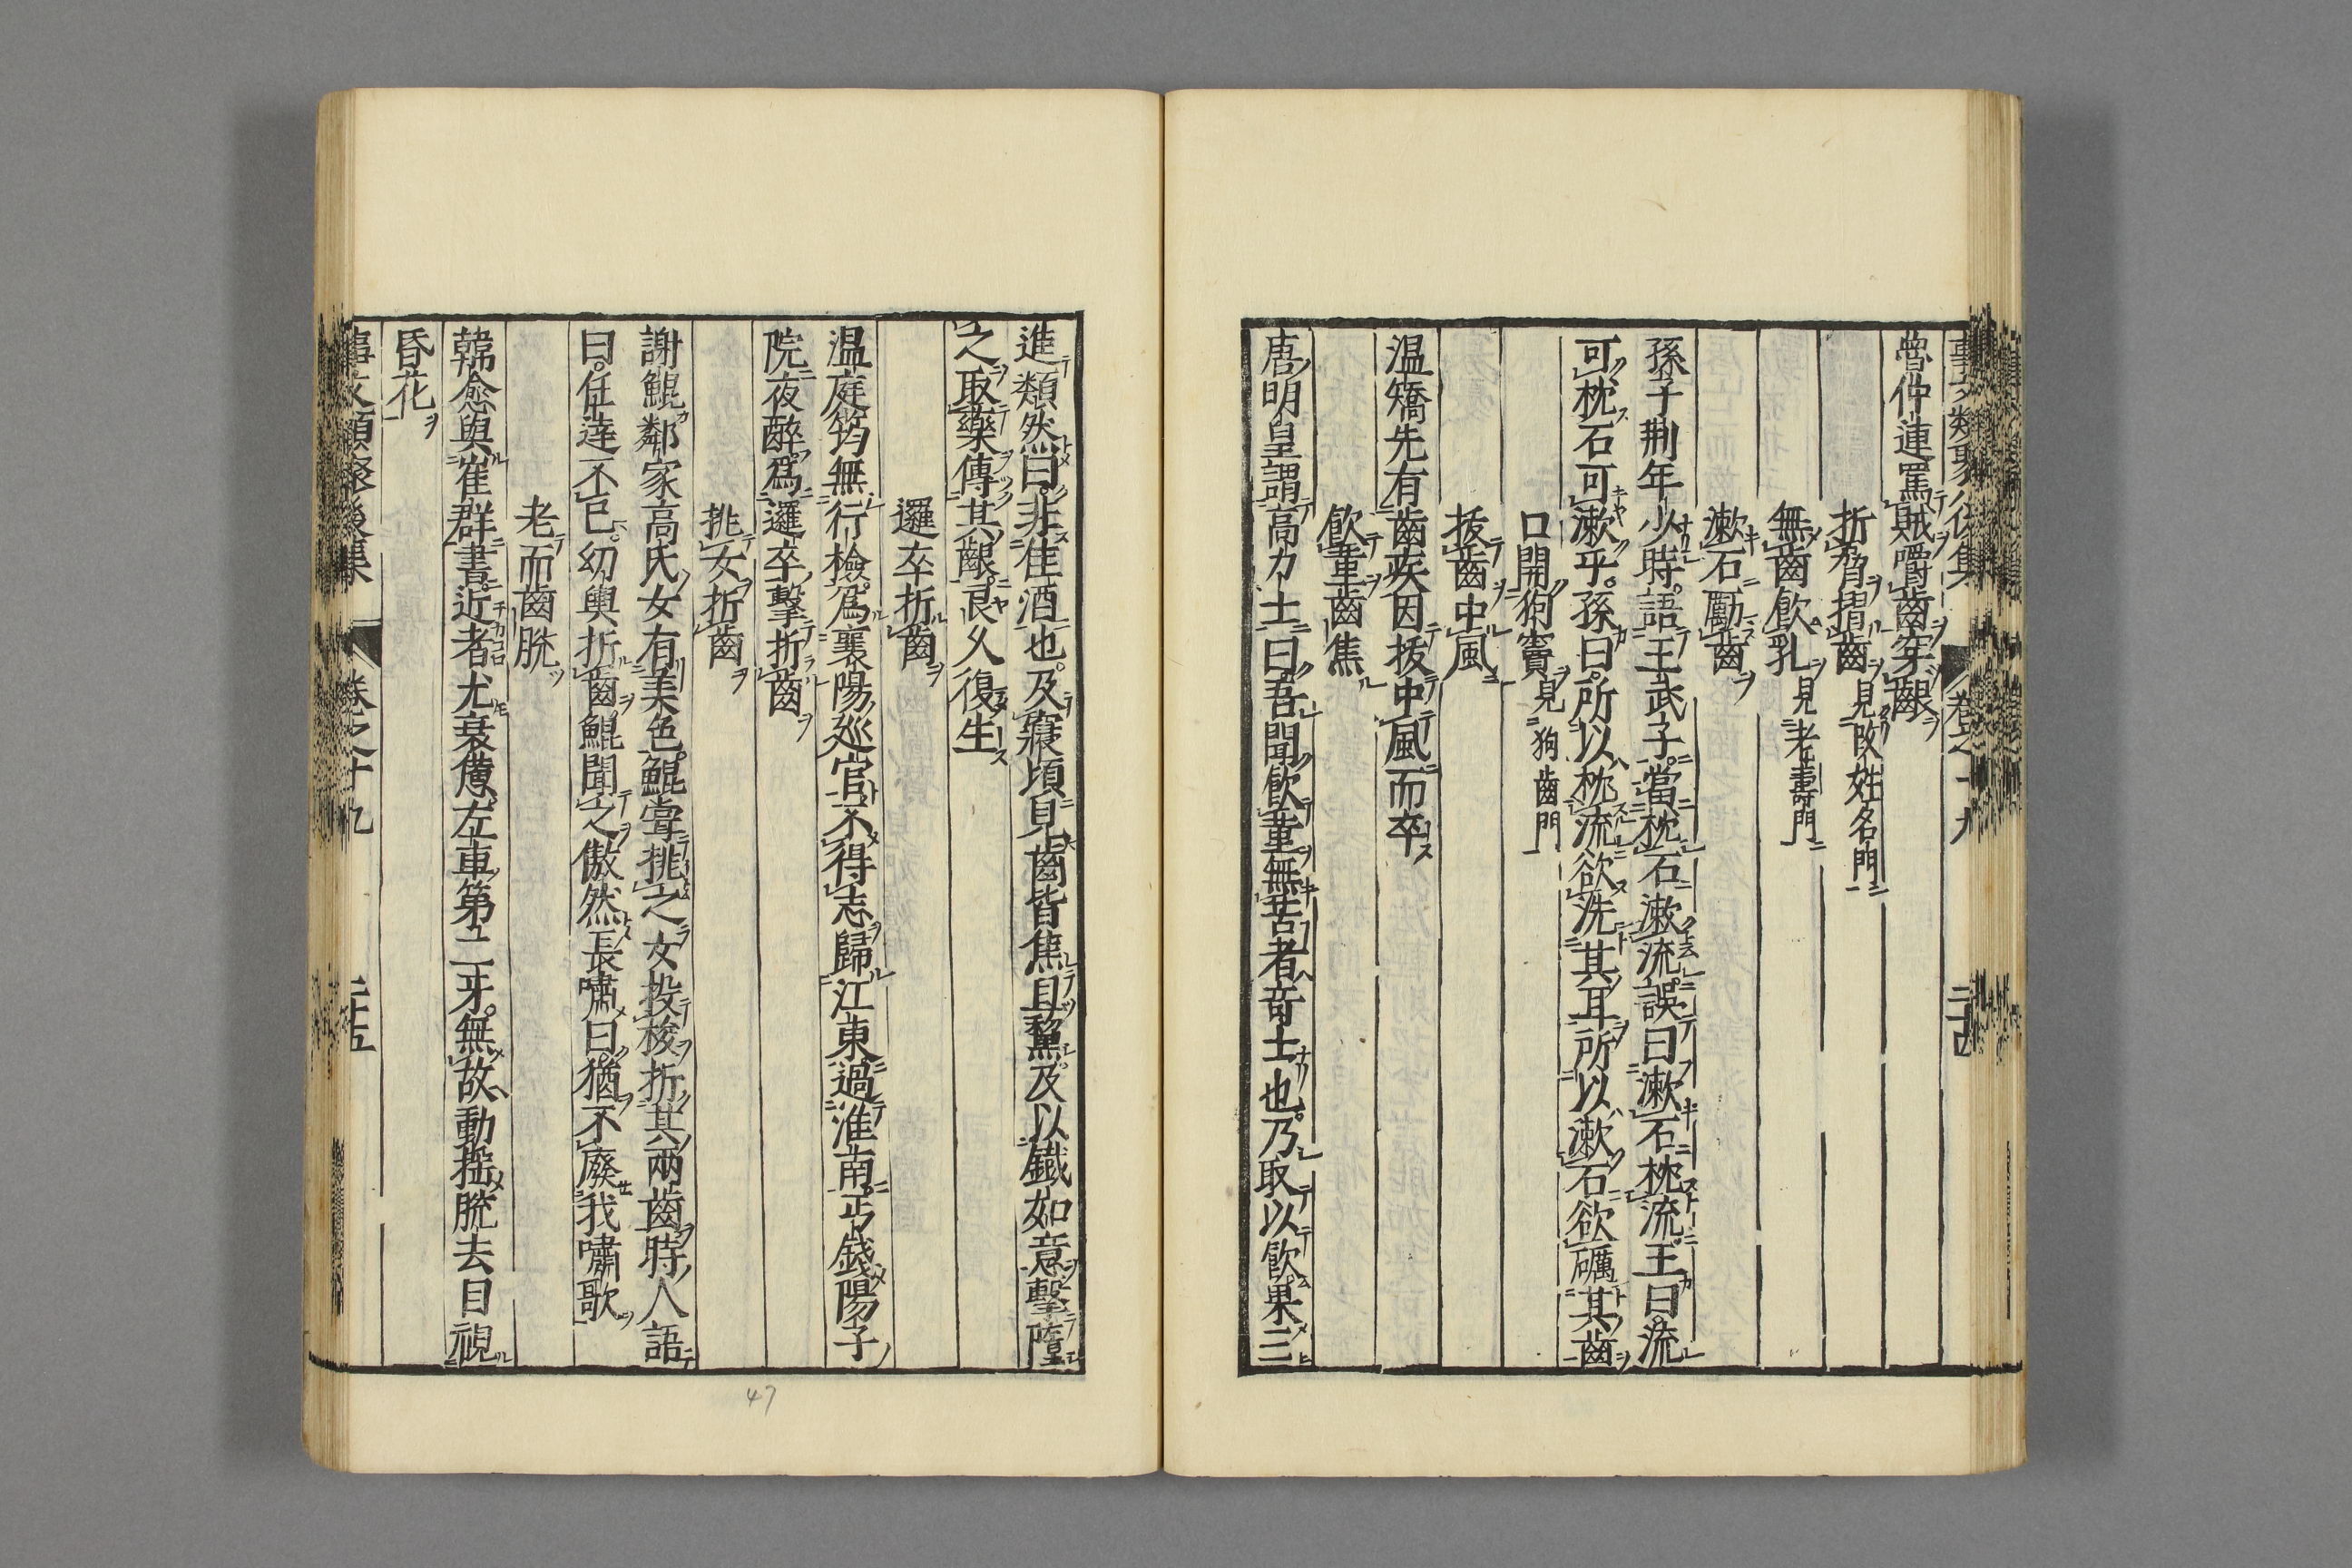 事文類聚後集 卷之十九
魯仲連罵賊嚼齒穿齦
折脅摺齒見改姓名門
無齒飲乳見老壽門
漱石勵齒
孫子荆年少時語王武子當枕石漱流誤曰漱石枕流王曰流
可枕石可漱乎孫曰所以枕流欲洗其耳所以漱石欲礪其齒
口開狗竇見狗齒門
拔齒中風
温矯先有齒疾因拔中風而卒
飲堇齒焦
唐明皇謂高力士曰吾聞飲堇無苦者奇士也乃取以飲果三
進頽然曰非佳酒也及寢頃見齒皆焦且黧及以鐵如意擊墮
之取藥傅其齦良久復生
邏卒折齒
温庭筠無行檢爲襄陽巡官不得志歸江東過淮南丐錢陽子
院夜醉爲邏卒擊折齒
挑女折齒
謝鯤鄰家高氏女有美色鯤嘗挑之女投梭折其兩齒時人語
曰任達不已幼輿折齒鯤聞之傲然長嘯曰猶不廢我嘯歌
老而齒脫
韓愈與崔群書近者尤衰憊左車第二牙無故動搖脫去目視
昏花
事文類聚後集 卷之十九 二十五
47